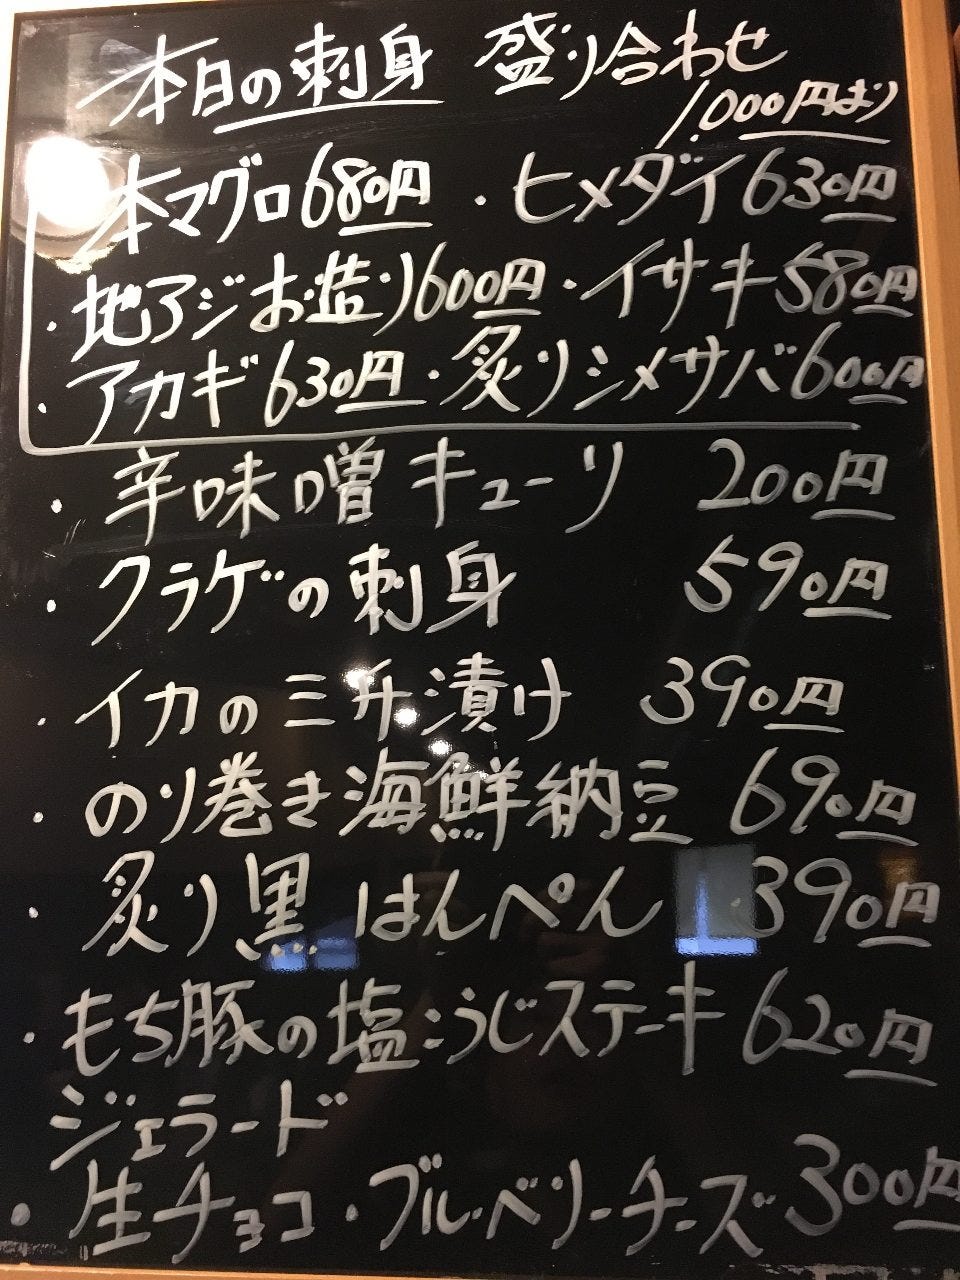 本日の刺身 盛り合わせ
1,000円より
本マグロ680円・ヒメダイ630円
・地アジお造り600円・イサキ580円
・アカギ630円・炙りシメサバ600円
・辛味噌キューリ 200円
・クラゲの刺身 590円
・イカの三升漬け 390円
・のり巻き海鮮納豆 690円
・炙り黒はんぺん 390円
・もち豚の塩こうじステーキ 620円
ジェラード
・生チョコ・ブルーベリーチーズ 300円